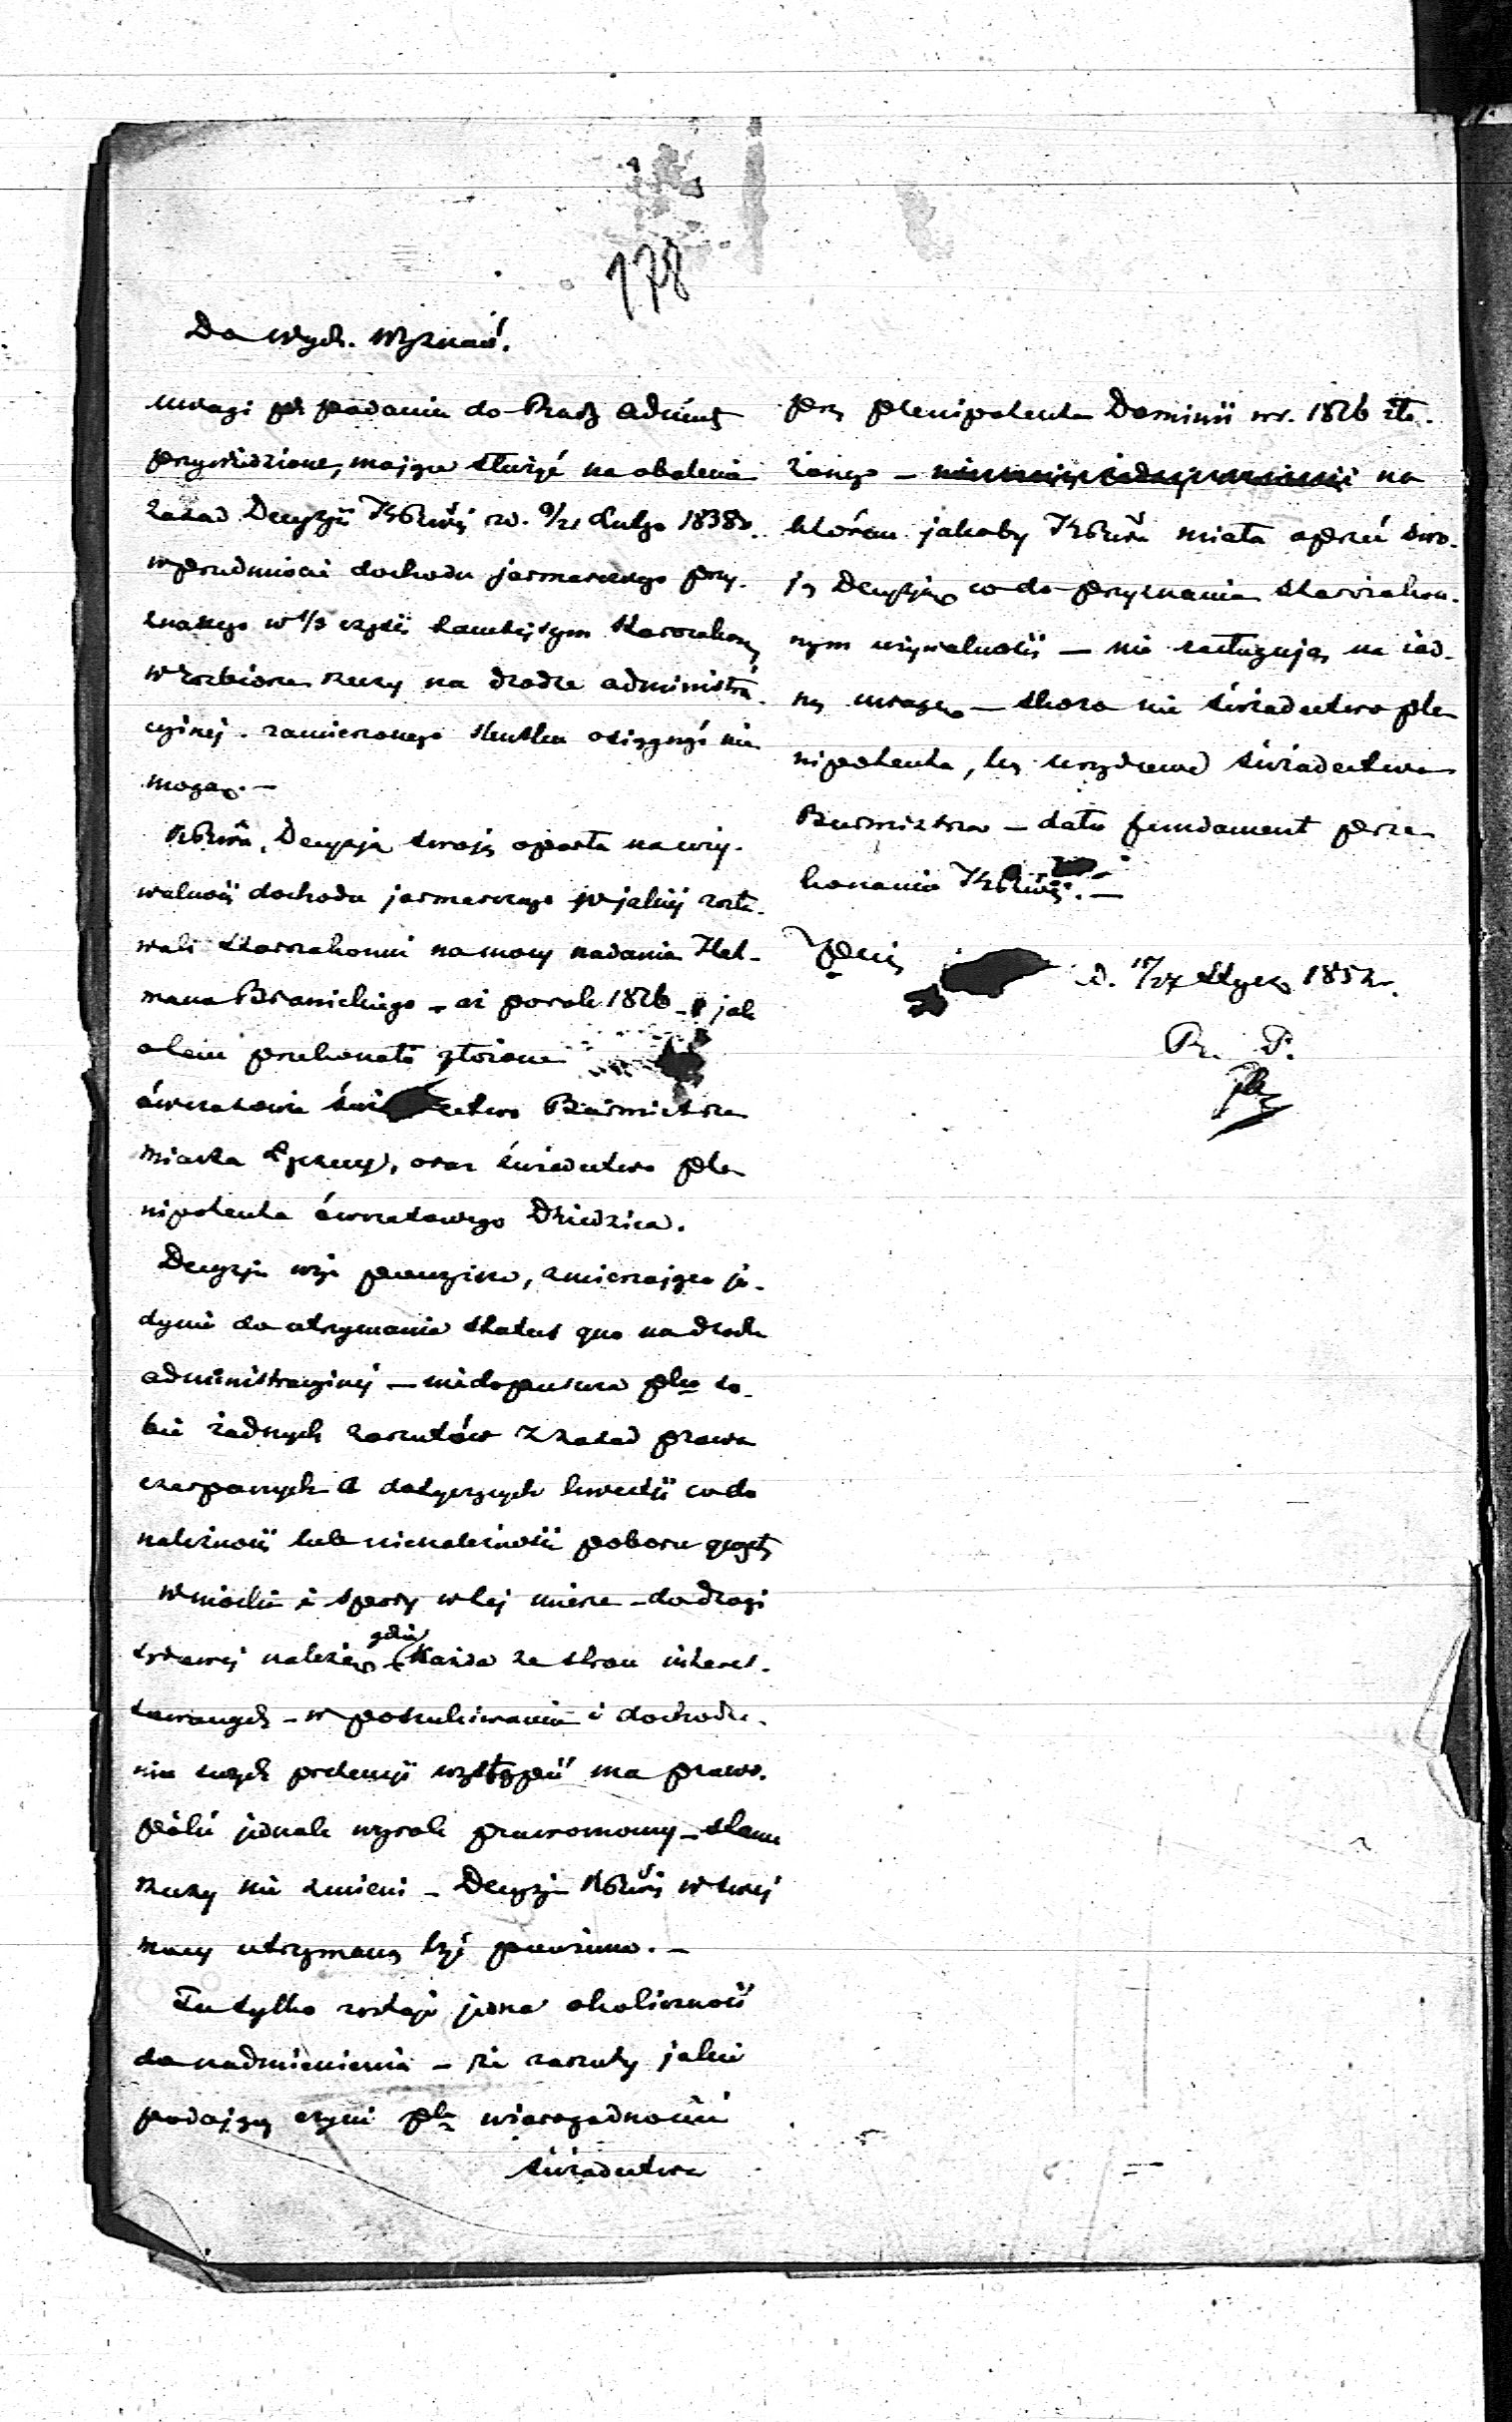 178
Do Wydz. Wyznań.
uwagi w podaniu do Rady Admin.
przywiedzione, mające służyć na obalenie
zasad Decyzji KRSW. z d. 9/21 Lutego 1838 r.
w przedmiocie dochodu jarmarcznego przy-
znanego w 1/3 części tamtejszym Starozakonnym
w rozbiorze rzeczy na drodze administra-
cyjnej zamierzonego skutku osiągnąć nie
mogą. –
Decyzją swoją oparła na uży-
walności dochodu jarmarcznego w jakiej zosta-
wali Starozakonni na mocy nadania Het-
mana Branickiego – aż po rok 1826 – jak
o tem przekonało złożone
ówcześnie Burmistrza
miasta oraz świadectwo ple-
nipotenta ówczesnego Dziedzica.
Decyzja wyż zmierzająca je-
dynie do utrzymania status quo na drodze
administracyjnej – niedopuszcza so-
bie żadnych zarzutów z zasad prawa
czerpanych a dotyczących kwestji co do
należności lub nienależności poboru
Wnioski i spory w tej mierze – do drogi
sądowej należą – gdzie każda ze stron interes-
sowanych – w poszukiwaniu i dochodze-
niu swych pretensji wystąpić ma prawo.
póki jednak wyrok prawomocny – stanu
rzeczy nie zmieni – Decyzja w swej
mocy utrzymaną być powinna. –
Tu tylko zostaje jedna okoliczność
do nadmienienia – że zarzuty jakie
podający czyni wiarogodności
świadectwa
przez plenipotenta Dominii w r. 1826 zło-
żonego – na
którem jakoby miała oprzeć swo-
ją Decyzję co do przyznania starozakon-
nym używalności – nie zasługują na żad-
ną uwagę – skoro nie świadectwo ple-
nipotenta, lecz urzędowe świadectwo
Burmistrza – dało fundament prze-
konaniu
d. 15/27 Stycz. 1852 r.